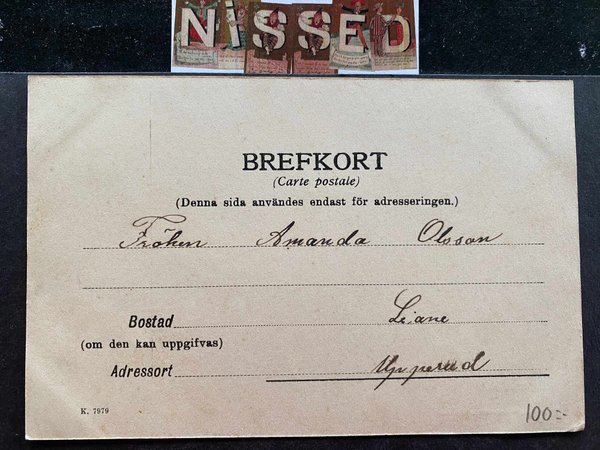 NISSED
BREFKORT
(Carte postale)
(Denna sida användes endast för adresseringen.)
Fröken Amanda Olsson
Bostad Liane
(om den kan uppgifvas)
Adressort Upperud
K. 7979
100:-